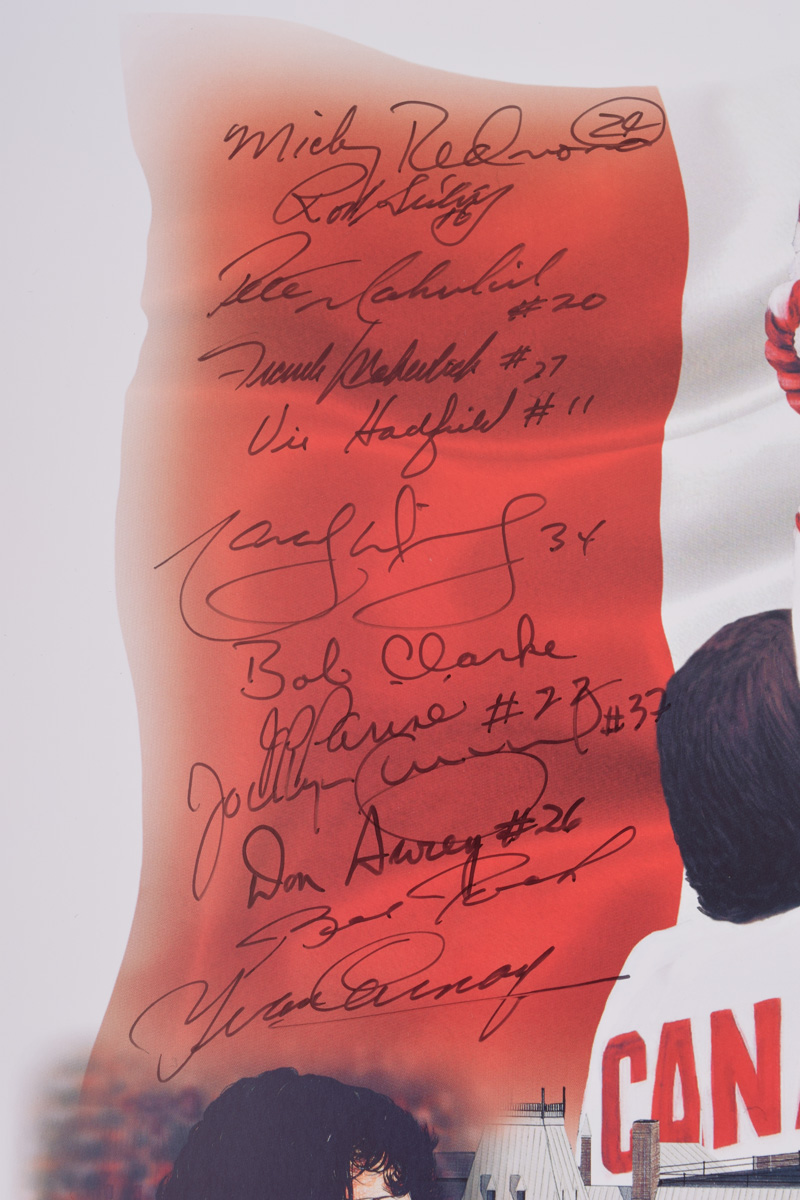 Micky Redmond 24
Rod Seiling 16
Pete Mahovlich
#20
Frank Mahovlich #27
Vic Hadfield #11
34
Bob Clarke
JP Parise #22
Jocelyn #37
Don Awrey #26
Brad Park
Yvan Cournoyer
CAN